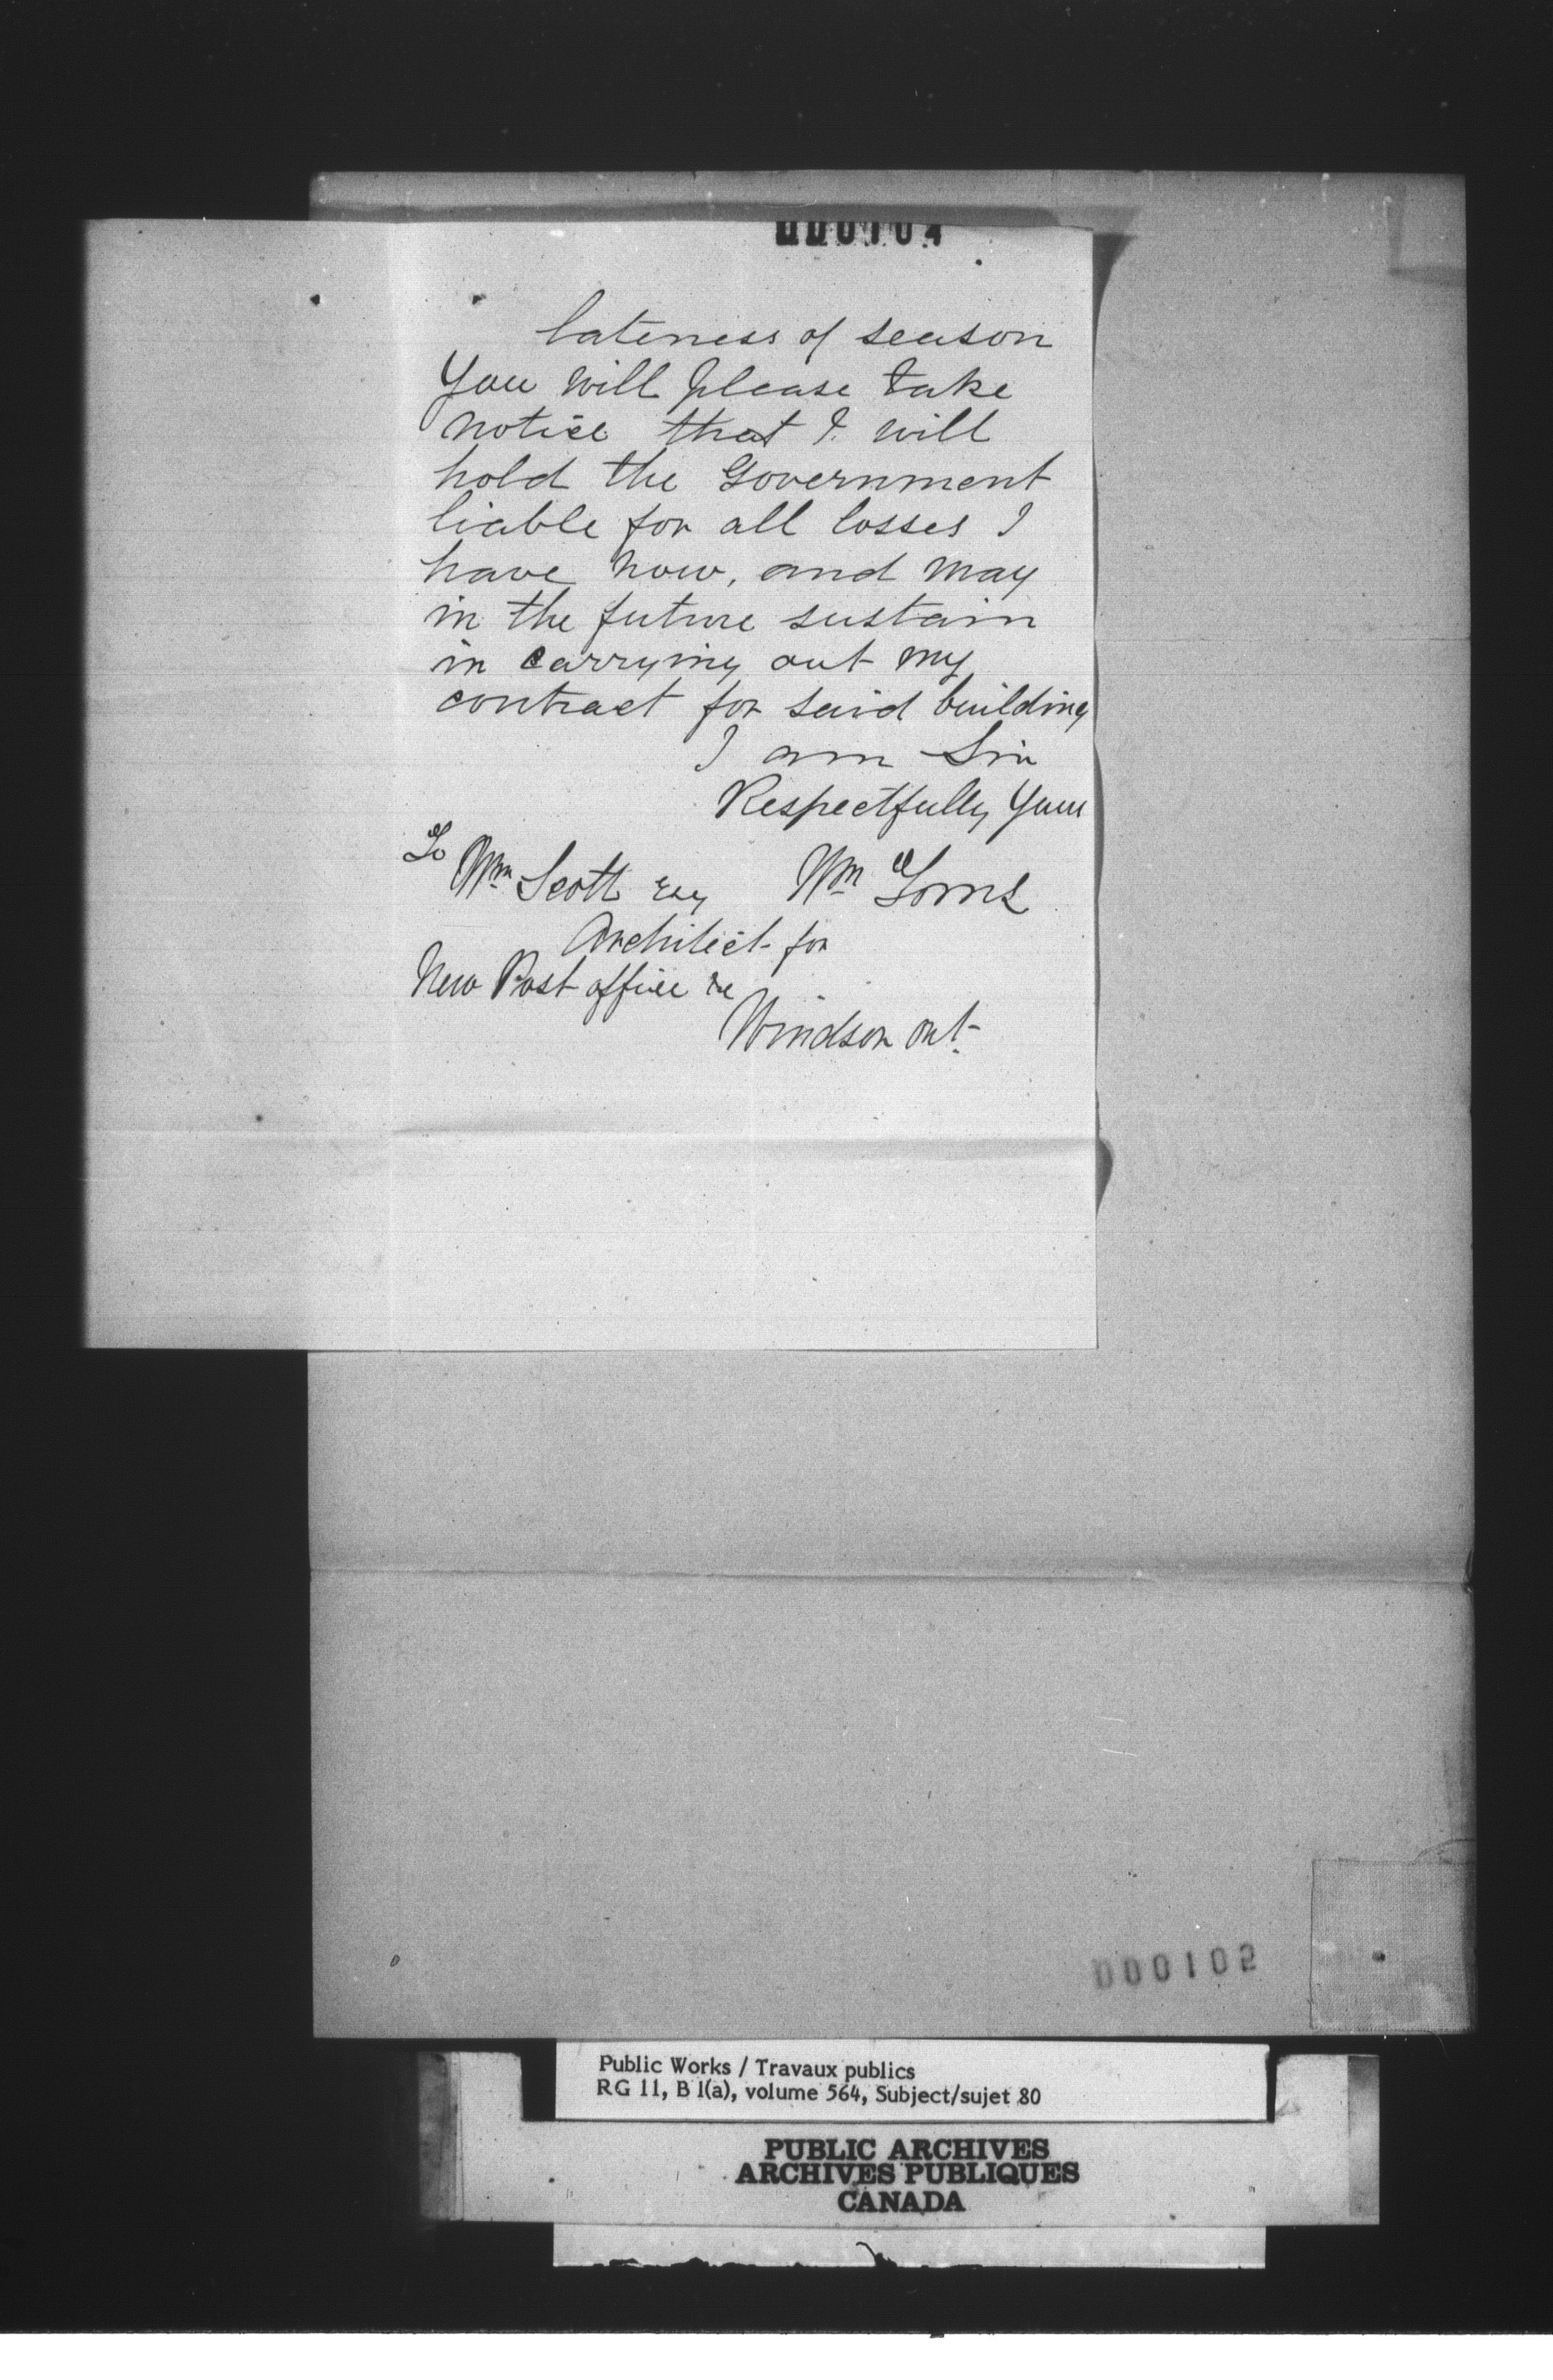 000104
lateness of season
You will please take
notice that I will
hold the Government
liable for all losses I
have now, and may
in the future sustain
in carrying out my
contract for said building
I am Sir
Respectfully Yours
To
Wm Scott Esq Wm
Architect for
New Post office &c
Windsor Ont.
000102
Public Works / Travaux publics
RG 11, B 1(a), volume 564, Subject/sujet 80
PUBLIC ARCHIVES
ARCHIVES PUBLIQUES
CANADA